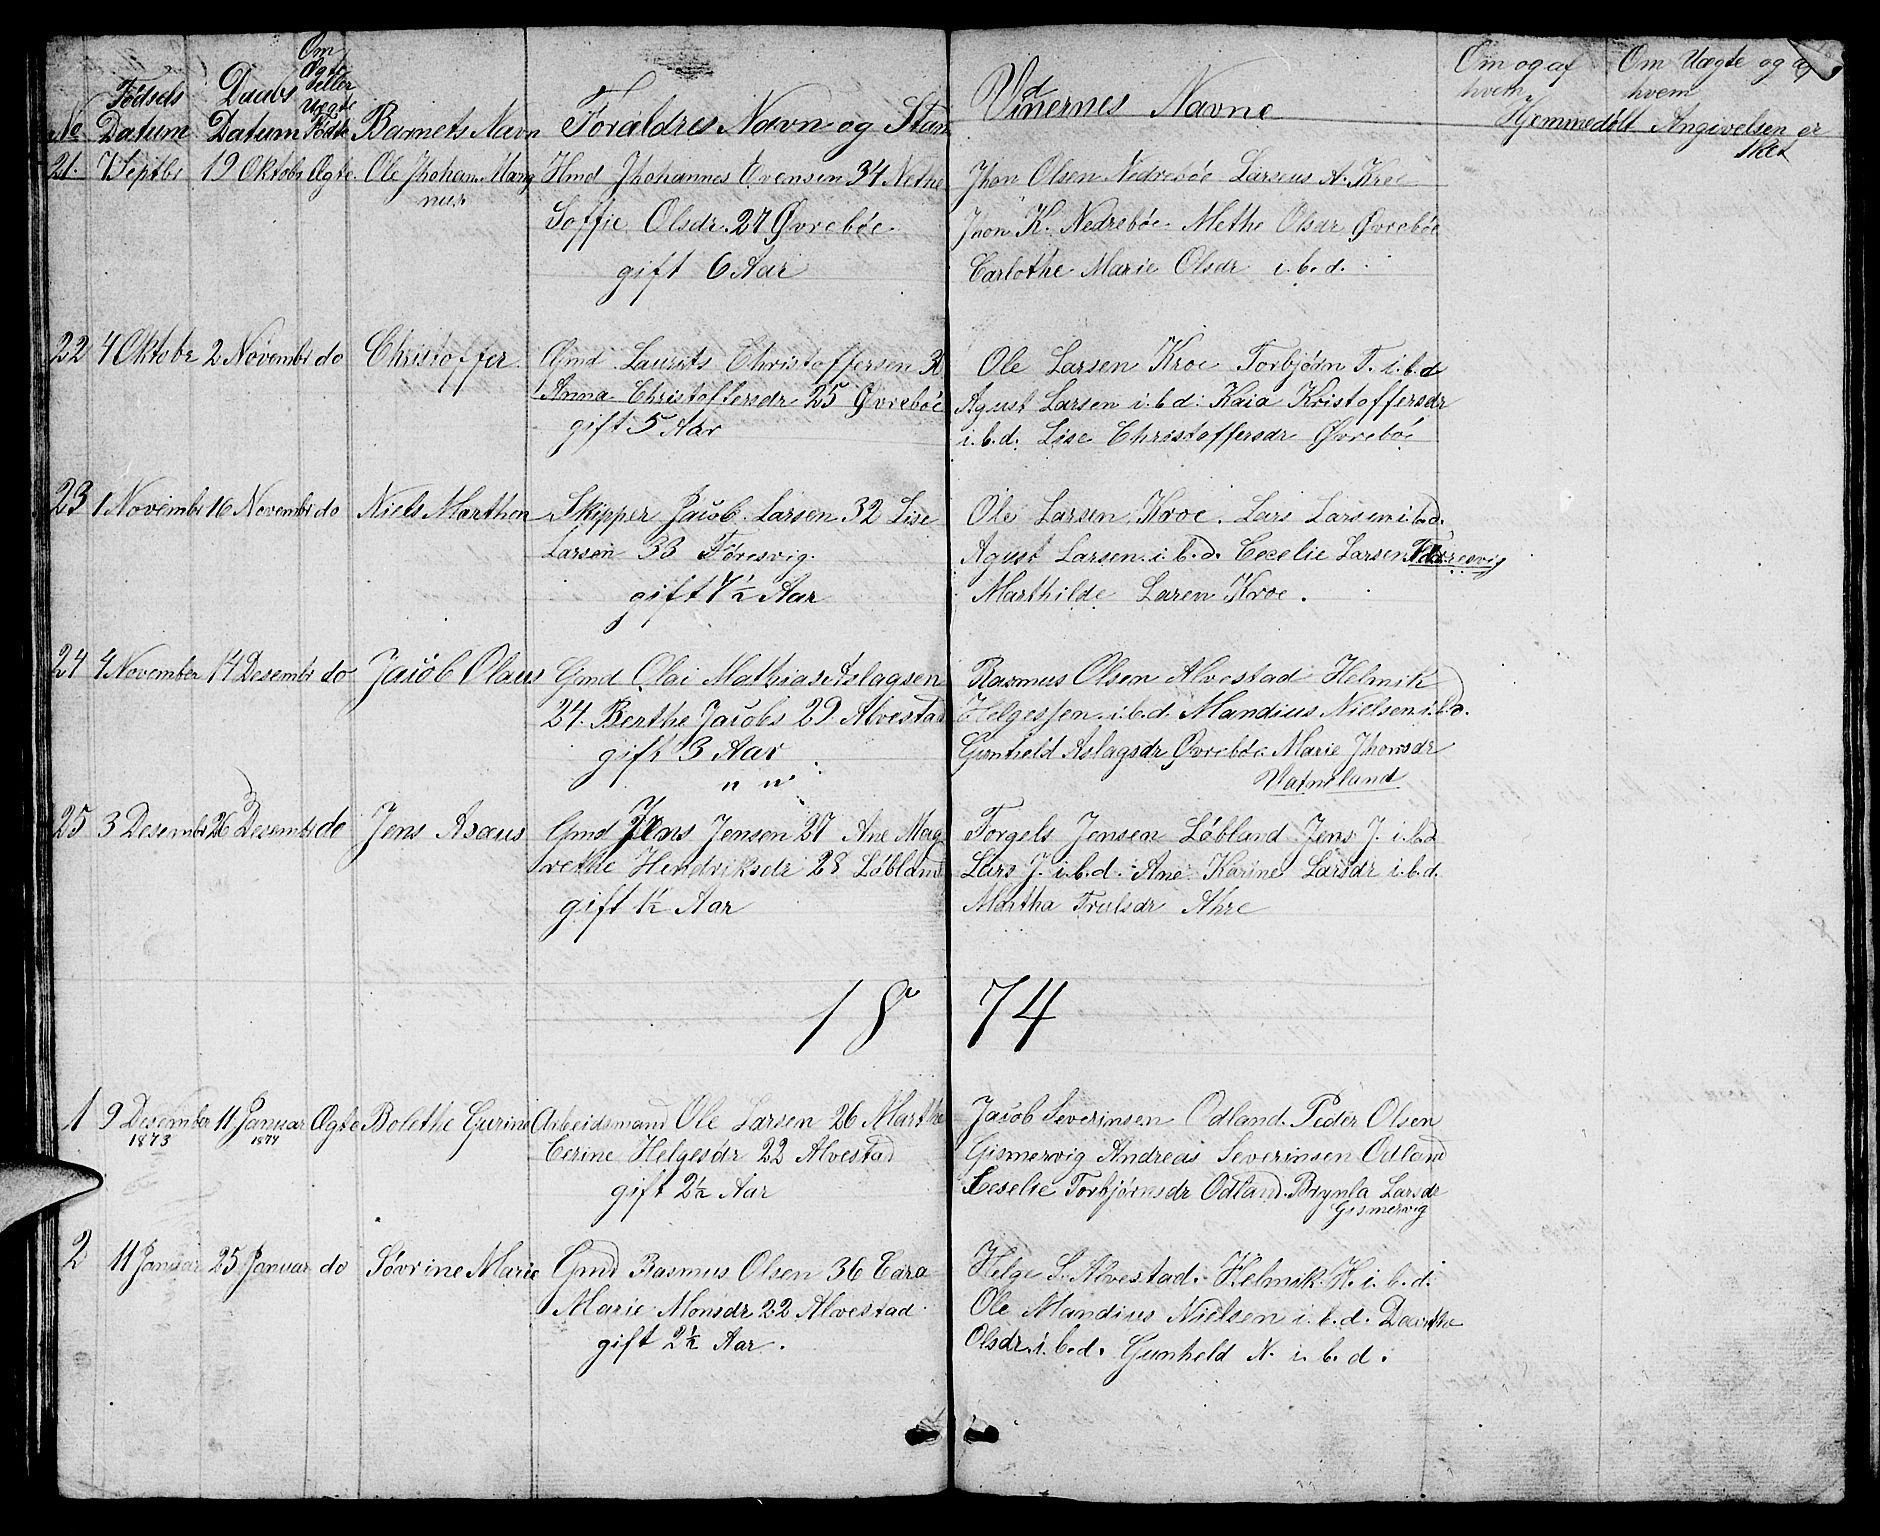 No Fødsels Datum Daabs Datum Om Ægte eller Uægte Fødte Barnets Navn Foraldres Navn og Stan Vidnernes Navne Om og af hvem Hjemmedøbt Om Uægte og af hvem Angivelsen er sket
21. 7 Septbr 19 Oktobr Ægte Ole Jhohan Mang Hmd Jhohannes Evensen 34 Nethe Jhon Olsen Nedrebøe Larsius A. Kroe
nus Soffie Olsdr. 27 Øvrebøe Jhon K. Nedrebøe Methe Olsdr Øvrebøe
gift 6 Aar Carlothe Marie Olsdr i.b.d.
22 4 Oktobr 2 Novembr do Christoffer Gmd Laurits Christoffersen 31 Ole Larsen Kroe Torbjørn T. i.b.d
Anna Christoffersdr 25 Øvrebøe Agust Larsen i.b.d. Kaia Kristoffersdr
gift 5 Aar i.b.d. Lise Christoffersdr Øvrebøe
23 1 Novembr 16 Novembr do Niels Marthon Skipper Jacob Larsen 32 Lise Ole Larsen Kroe. Lars Larsen i.b.d.
Larsen 33 Føresvig. Agust Larsen i.b.d. Cecelie Larsen Føresvig
gift 7½ Aar Marthilde Laren Kroe.
24 4 November 14 Desembr do Jacob Olaus Gmd Olai Mathias Aslagsen Rasmus Olsen Alvestad Helmik
24. Berthe Jacobs 29 Alvestad Helgesen i.b.d. Mandius Nielsen i.b.d.
gift 3 Aar Gunheld Aslagsdr Øvrebøe Marie Jhonsdr
" " Vatneland
25 3 Desembr 26 Desembr do Jens Asaus Gmd Jens Jensen 27 Ane Mag Torgels Jensen Løbland Jens J. i.b.d
rethe Hendriksdr 28 Løbland Lars J. i.b.d. Ane Karine Larsdr i.b.d.
gift 1½ Aar Martha Trulsdr Ahre
18 74
1 9 Desember 11 Januar Ægte Bolethe Gurine Arbeidsmand Ole Larsen 26 Marthe Jacob Severinsen Odland. Peder Olsen
1873 1874 Cerine Helgesdr 22 Alvestad Gismervig Andreas Severinsen Odland
gift 2½ Aar Ceselie Torbjørnsdr Odland. Brynla Larsdr
Gismervig
2 11 Januar 25 Januar do Søvrine Marie Gmd Rasmus Olsen 36 Cara Helge S. Alvestad. Helmik H. i.b.d.
Marie Monsdr 22 Alvestad Ole Mandius Nielsen i.b.d. Dorthe
gift 2½ Aar. Olsdr. i.b.d. Gunheld N. i.b.d.